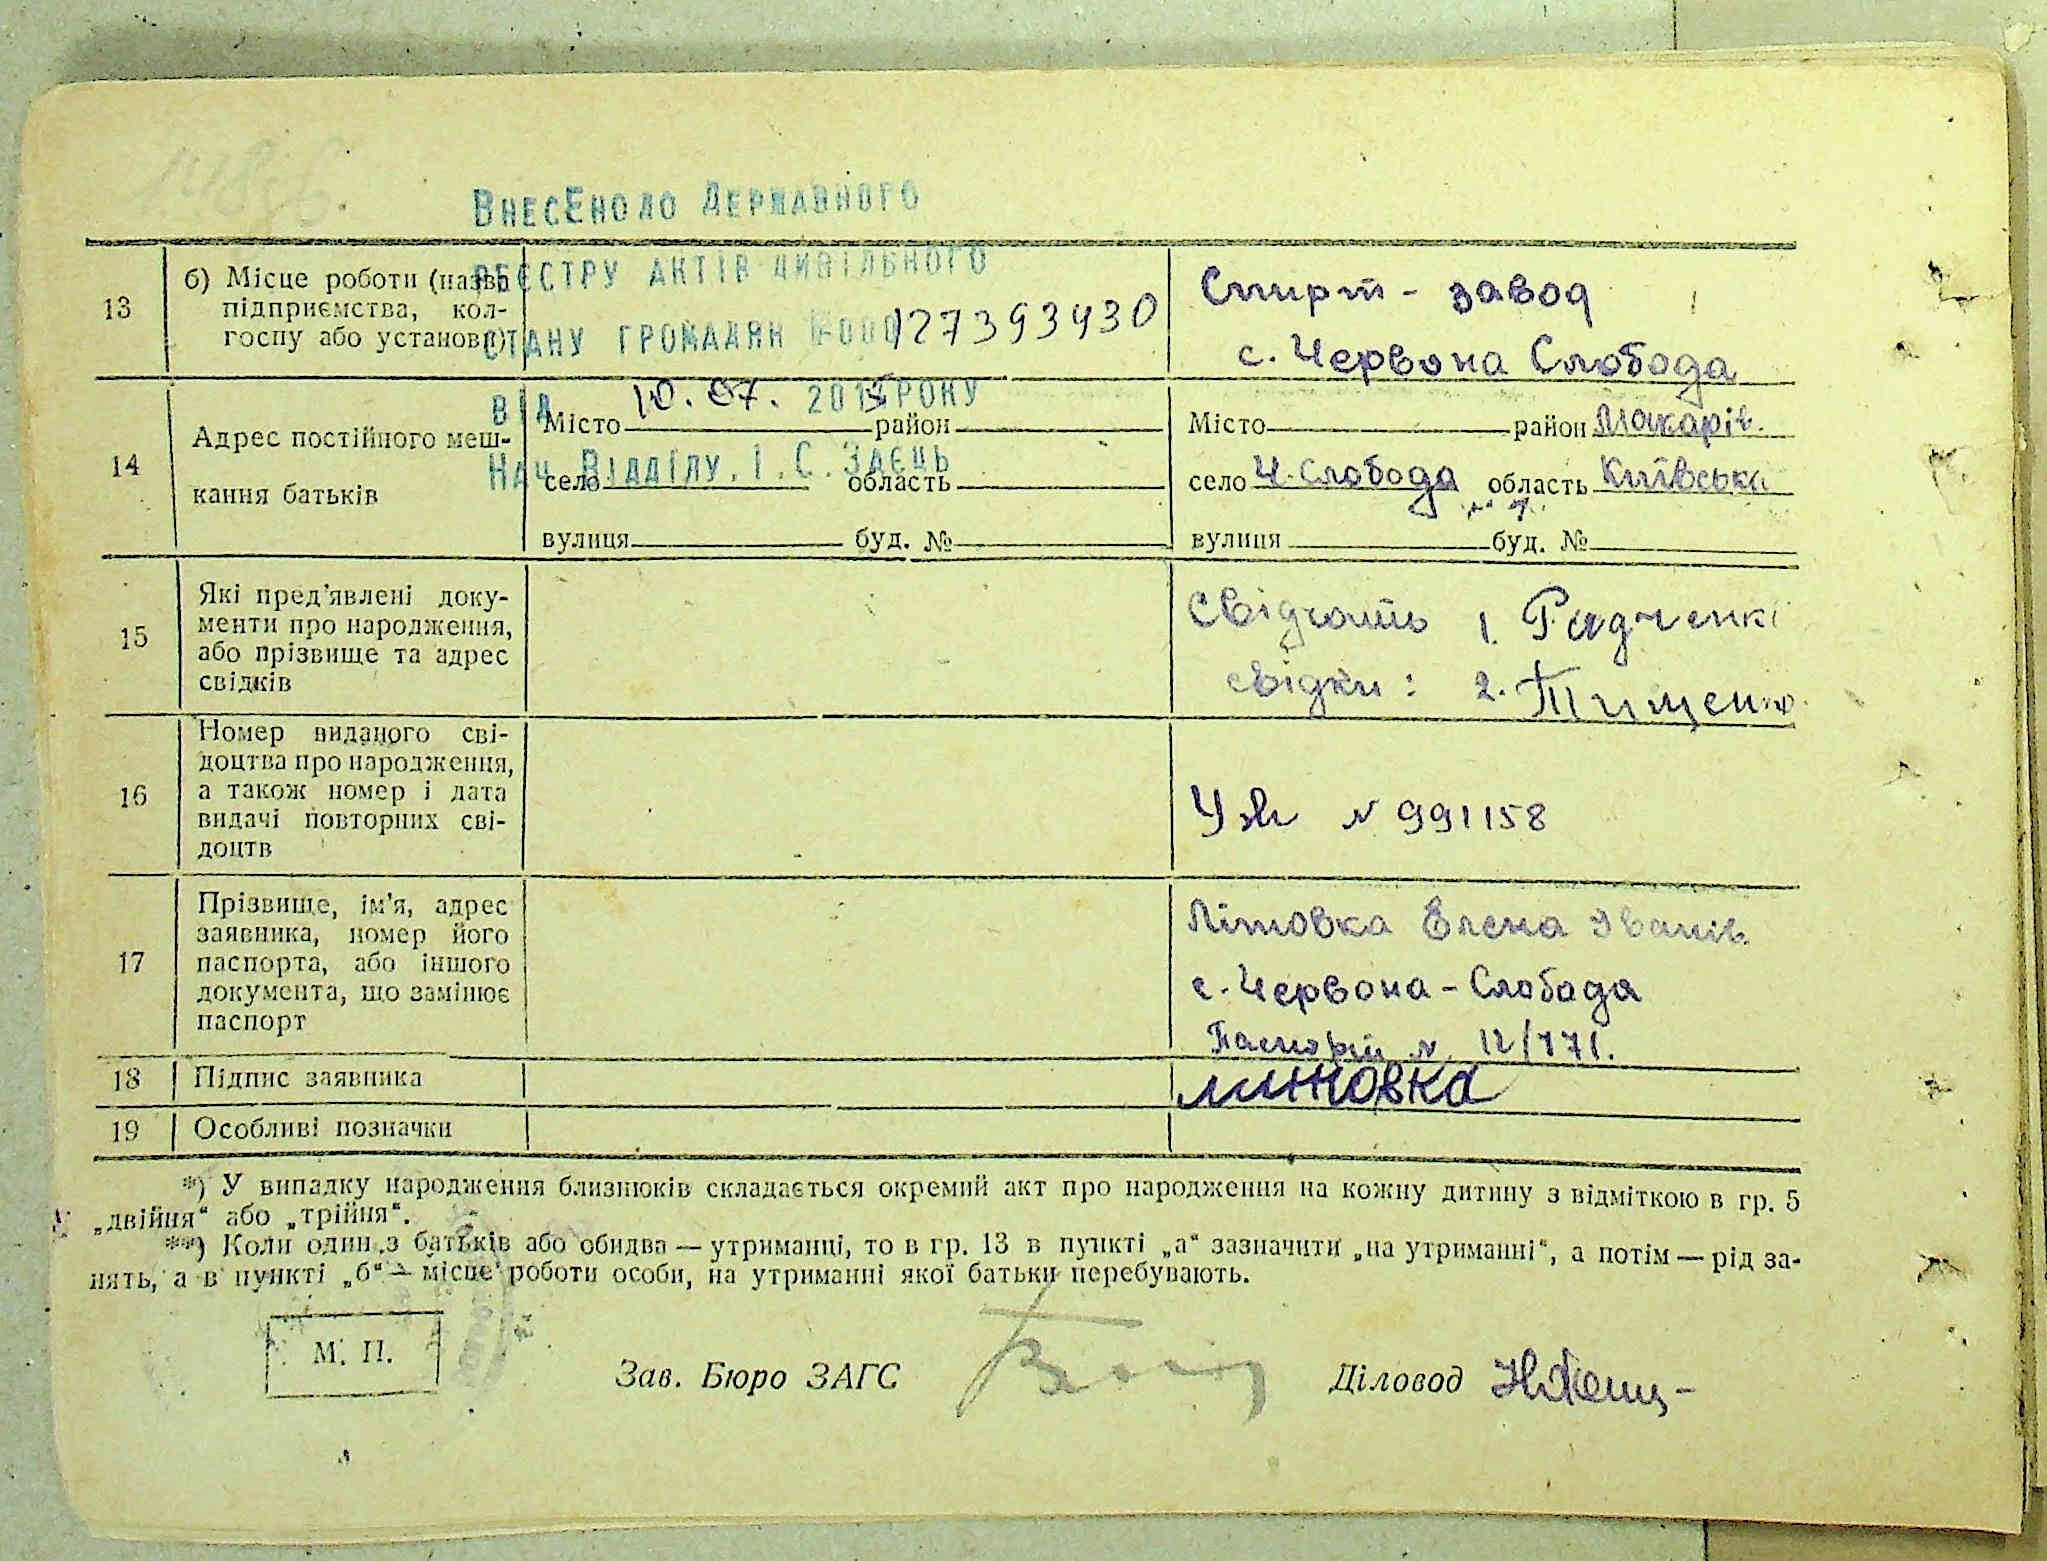 ВНЕСЕНО ДО ДЕРЖАВНОГО
РЕЄСТРУ АКТІВ ЦИВІЛЬНОГО
СТАНУ ГРОМАДЯН №000127393430
ВІД 10.07. 201 РОКУ
НАЧ. ВІДДІЛУ. І. С. ЗАЄЦЬ
13
б) Місце роботи (назва
підприємства, кол-
госпу або установи)
Спирт - завод
с. Червона Слобода
14
Адрес постійного меш-
кання батьків
Місто район
село область
вулиця буд. №
Місто район Макарів.
село Ч. Слобода область Київська
вулиця буд. №
15
Які пред'явлені доку-
менти про народження,
або прізвище та адрес
свідків
Свідчать 1. Радченко
свідки: 2. Тищенко
16
Номер виданого сві-
доцтва про народження,
а також номер і дата
видачі повторних сві-
доцтв
N 991158
17
Прізвище, ім'я, адрес
заявника, номер його
паспорта, або іншого
документа, що замінює
паспорт
Літовка Елена Іванів.
с. Червона-Слобода
Паспорт N 12/771.
18 Підпис заявника
литовка
19 Особливі позначки
*) У випадку народження близнюків складається окремий акт про народження на кожну дитину з відміткою в гр. 5
„двійня“ або „трійня“.
**) Коли один з батьків або обидва — утриманці, то в гр. 13 в пункті „а“ зазначити „на утриманні“, а потім — рід за-
нять, а в пункті „б“ — місце роботи особи, на утриманні якої батьки перебувають.
М. П.
Зав. Бюро ЗАГС
Діловод